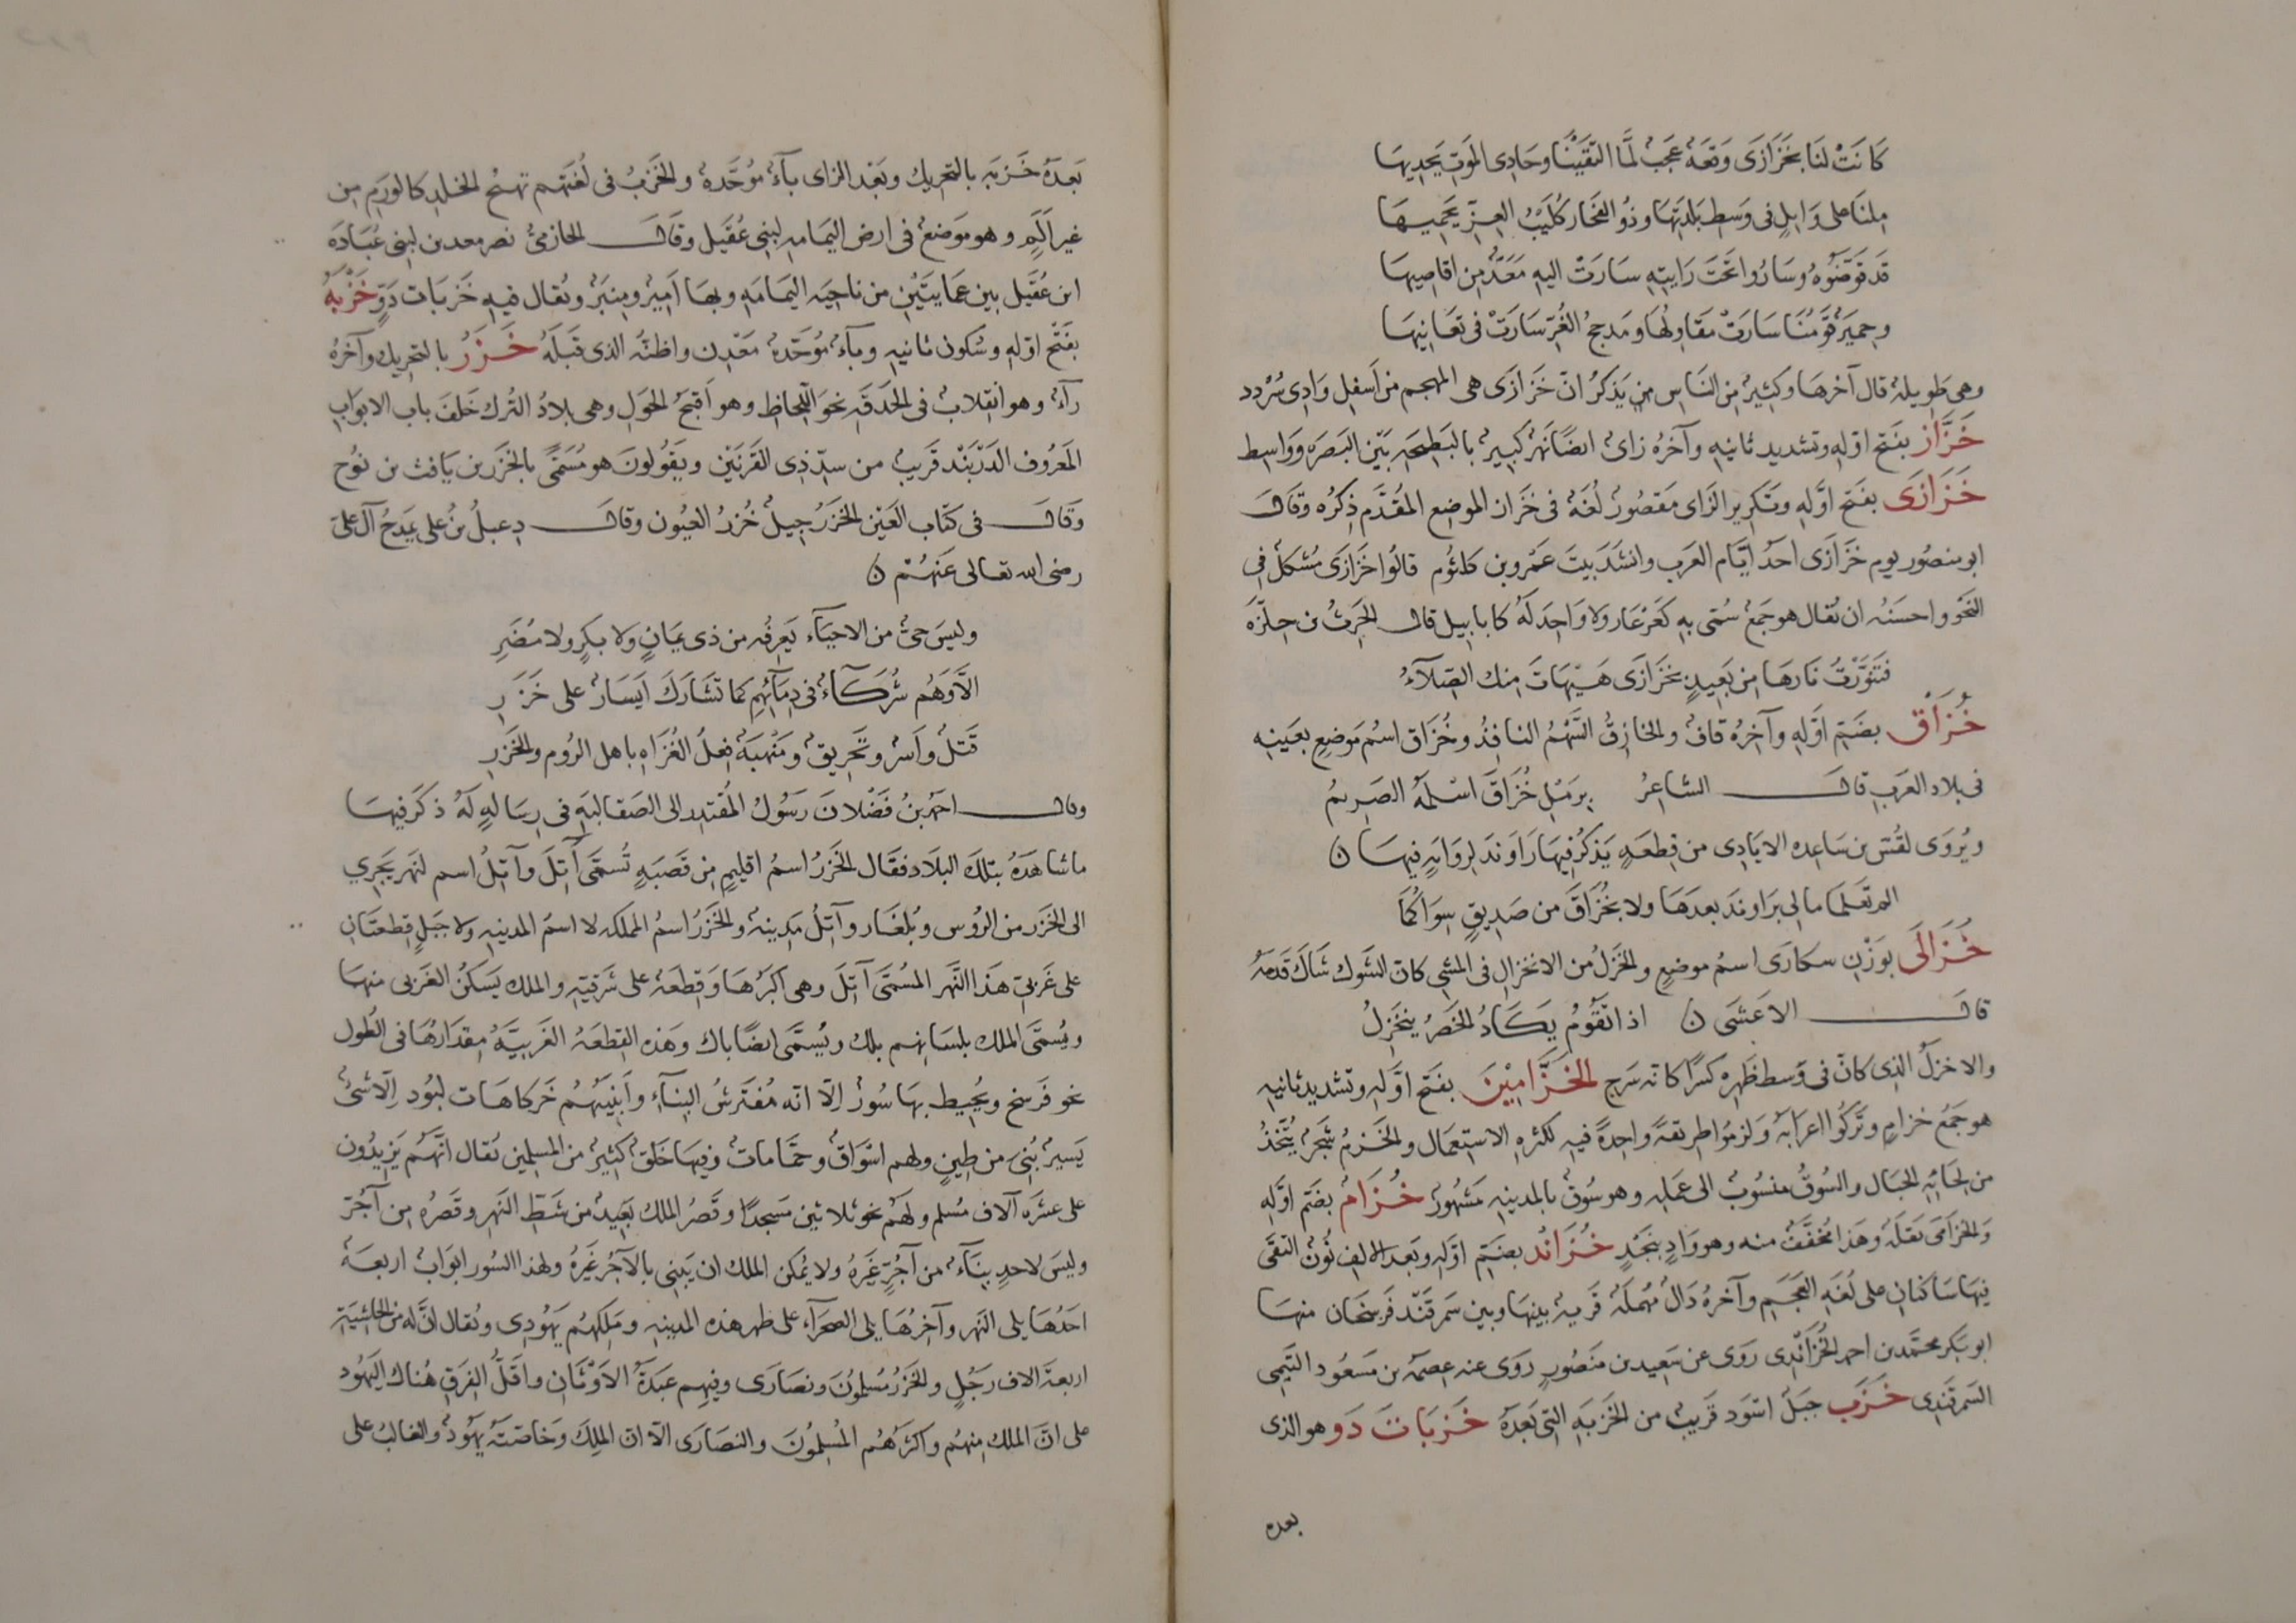 كَانَتْ لنَا بخَزَازَى وَقعَةٌ عَجَبٌ لَمَّا التقَيْنَا وحَادِى المَوتِ يَحدِيهَا
مِلنَا على وَايلٍ فى وَسطِ بَلدَتِهَا وذُو الفَخَارِ كُلَيْبُ العِزِّ يَحمِيهَا
قد فَوَّضُوهُ وسَارُوا تحَتَ رَايتِهِ سَارَتْ اليهِ مَعَدٌّ مِن اقاصِيهَا
وحِميَر قَومُنَا سَارَتْ مقَاوِلُهَا ومَدحج الغُرّ سَارَتْ فى تعَانِيهَا
وهى طَويلة قال آخرهَا وكثِيرٌ مِن النَاسِ مِن يَذكرُ انّ خَزَازَى هى المهجم من اَسفل وَادى سُرْدد
خَزَّاز بفتح اوّلِهِ وتشديد ثانيهِ وآخرُه زاىٌ ايضًا نَهرٌ كبيرٌ بالبَطِيحَهِ بَيْن البَصرَه ووَاسِط
خَزَازَى بفتح اوَّلِهِ وتَكرِيرِ الزَاى مَقصُورٌ لُغَةٌ فى خزَاز الموضع المُقَدَّمِ ذِكرُه وقَال
ابو منصُور يوم خَزَازَى احَدُ ايَّام العَرب وانشَدَ بيتَ عَمْرو بن كلثُوم قالُوا خَزَازَى مُشكلٌ فى
النحو واحسَنُه ان يُقال هو جَمعٌ سُمّى بهِ كعَرْعَار ولا وَاحِدَ لَهُ كابابيل قال الحِرثُ بن حِلّزَه
فتَنَوَّرْتُ نَارهَا مِن بَعِيدٍ بخَزَازَى هَيْهَاتَ مِنك الصّلآءُ
خُزَاق بضَمّ اوَّلِهِ وآخِرُهُ قافٌ والخازِقُ السَّهْمُ النافِذُ وخُزَاق اسْمُ مَوضعٍ بعَينِهِ
فى بلاد العَربِ قال الشاعِرُ بِرَمْلِ خُزَاقَ اسْلَمَهُ الصَرِيمُ
ويُروَى لقُسّ بن سَاعِده الايَادِى من قِطعَهٍ يَذكُرُ فِيهَا رَاوَندَ لِرَوَايَهٍ فِيهَا ن
الم تعلمَا مالى بَراونَد بعدَهَا ولا بخُزَاقَ من صَدِيقٍ سِوَاكُمَا
خُزَالَى بوَزْنِ سكارَى اسمُ موضع والخَزلُ من الانخزالِ فى المشى كان الشَوك شَاكَ قَدَمَهُ
قال الاعشَى ن اذا تقُومُ يَكَادُ الخَصْرُ ينخَزِلُ
والاخزَلُ الذى كانَ فى وَسط ظَهرِه كسْرًا كانه سَرج الخَزَّامِيْنَ بفتح اوّلِهِ وتشديد ثانيهِ
هو جَمْعُ خزامٍ وتَرَكُوا اعرَابَهُ ولزمُوا طريقةً واحِدةً فيهِ لكثره الاستعمَال والخَزمُ شجَرٌ يُتَّخَذُ
من لحائِهِ الحبَال والسُوقُ منسُوبٌ الى عَمَلِهِ وهو سُوق بالمدينهِ مَشهُورٌ خُزَام بضَمّ اوَّلِهِ
وَالخزَامَى بَقلَةٌ وهَذا مُخَفَّفٌ منه وهو وَادٍ بنَجْدٍ خُزَانْد بضَمّ اوّلِهِ وبَعد الالف نُونٌ التقَى
فِيهَا سَاكنانِ على لُغَهِ العَجَمِ وآخرهُ دَالٌ مُهمَلَهٌ قريهٌ بينهَا وبين سَمرقنْد فَرسَخان منهَا
ابو بَكر محمَّد بن احمد الخُزَانْدِى رَوَى عن سَعِيد بن منصُور رَوَى عنه عِصمَهُ بن مَسعُود التيمى
السَمرقَندِى خَزَب جبَلٌ اسْوَد قَريبٌ من الخَزبَهِ التى بَعدَهُ خَزَبَات دَو هو الذى
بعده
بَعدَهُ خَزبَه بالتحريك وبَعْد الزاى بآءٌ مُوَحَّدهٌ والخَزَبُ فى لُغَتِهم تهبّجُ الجلدِ كالوَرَمِ مِن
غير اَلَمٍ وهو مَوَضعٌ فى ارض اليَمامهِ لبنى عُقَيل وقَال الحازمىُّ نصر معدن لبنى عُبَادَه
ابن عُقَيل بين عَمَايتَيْنِ من ناحيَهِ اليمَامَهِ وبهَا اَمِيرٌ ومِنبَرٌ ويُقال فيهِ خَزَبات دَوٍّ خَزْبهُ
بفَتْح اوّلِهِ وسُكون ثانيهِ وبآءٌ مُوَحّدهٌ مَعْدِن واظنّه الذى قَبلَهُ خَزَرُ بالتحريك وآخرُهُ
رآءٌ وهو انقِلابٌ فى الحَدَقَهِ نحوَ اللّحاظِ وهو اَقبَحُ الحَوَلِ وهى بلادُ التُرك خَلفَ باب الابوَاب
المَعرُوف الدَرْبَنْد قَريبٌ من سدّ ذى القَرنَيْن ويقُولونَ هو مُسَمًّى بالخَزَر بن يَافث بن نُوح
وَقَال فى كتَاب العَيْن الخَزَرُ جِيلٌ خُزرُ العيُون وقال دِعبلُ بنُ على يَمدحُ آل على
رضى الله تعالى عَنهُمْ ن
وليسَ حىٌّ من الاحيَآء يَعرفُه من ذى يمَانٍ ولا بكرٍ ولا مُضَرِ
الَّا وَهُم شُركَآءٌ فى دِمَآئِهِم كمَا تَشَارَكَ اَيسَارٌ على خَزَرِ
قَتلٌ وأسْرٌ وتَحرِيقٌ ومَنْهَبَهٌ فِعلَ الغُزَاهِ باهل الرُوم والخَزَرِ
وقال احمَد بنُ فَضْلان رَسُولُ المُقتدِر الى الصَقالبَهِ فى رِسَالهٍ لَهُ ذكَر فيهَا
ما شاهَدَهُ بتلكَ البلَاد فقَال الخَزَرُ اسمُ اقليمٍ مِن قَصَبَهٍ تُسَمَّى آتِلَ وآتِلُ اسم لنَهر يَجرى
الى الخَزَر من الرُوس وبُلغَار وآتِلُ مَدِينهٌ والخَزَرُ اسمُ المملكه لا اسمُ المدينه ولا جَبَلٍ قِطعتَانِ
على غَربىّ هَذا النَّهر المُسَمَّى آتِلَ وهى اكبَرُهَا وَقِطعَهٌ على شَرقِيّهِ والملك يَسكنُ الغَربى منهَا
ويُسَمَّى الملك بلسَانِهم بلك ويُسَمَّى ايضًا باك وهَذه القِطعَهُ الغَربيَّهُ مِقدَارُهَا فى الطُول
نحو فَرسخ ويُحِيط بهَا سُورٌ اِلّا انّه مُفتَرشُ البنَآءِ وابنِيَتُهُمْ خَركاهَات لبُود اِلّا شىٌ
يَسيرٌ بُنىَ من طِينٍ ولهم اسْوَاقٌ وحمَّاماتٌ وفيهَا خَلقٌ كثِيرٌ من المُسلِمين يُقال انَّهُم يَزيدُون
على عشَرَه آلاف مُسلم ولهُم نحو ثلاثين مَسجدًا وقَصْرُ الملك بَعِيدٌ من شَطّ النَهر وقَصرُه مِن آجُرّ
وليسَ لاحدٍ بِنَآءٌ من آجُرٍّ غَيرِهُ ولا يُمكن الملك ان يَبنى بالآجُر غَيرهُ ولهذا السُور ابوَابٌ اربعَهٌ
احَدُهَا يلى النَهر وآخِرُهَا يلى الصحَرآء على ظهر هذه المدينه ومَلِكهُم يَهُودِى ويُقال انّ لَه من الحاشِيَهِ
اربعهَ الاف رَجُلٍ والخَزَرُ مُسلِمُونَ ونصَارَى وفيهم عَبَدَهُ الاَوْثَانِ واقَلُّ الفِرَقِ هُناك اليَهُود
على انّ الملك مِنهُم واكثرهُم المُسْلِمُونَ والنصَارَى اِلّا انّ الملِكَ وخاصّتَهُ يَهُودٌ والغالبُ على